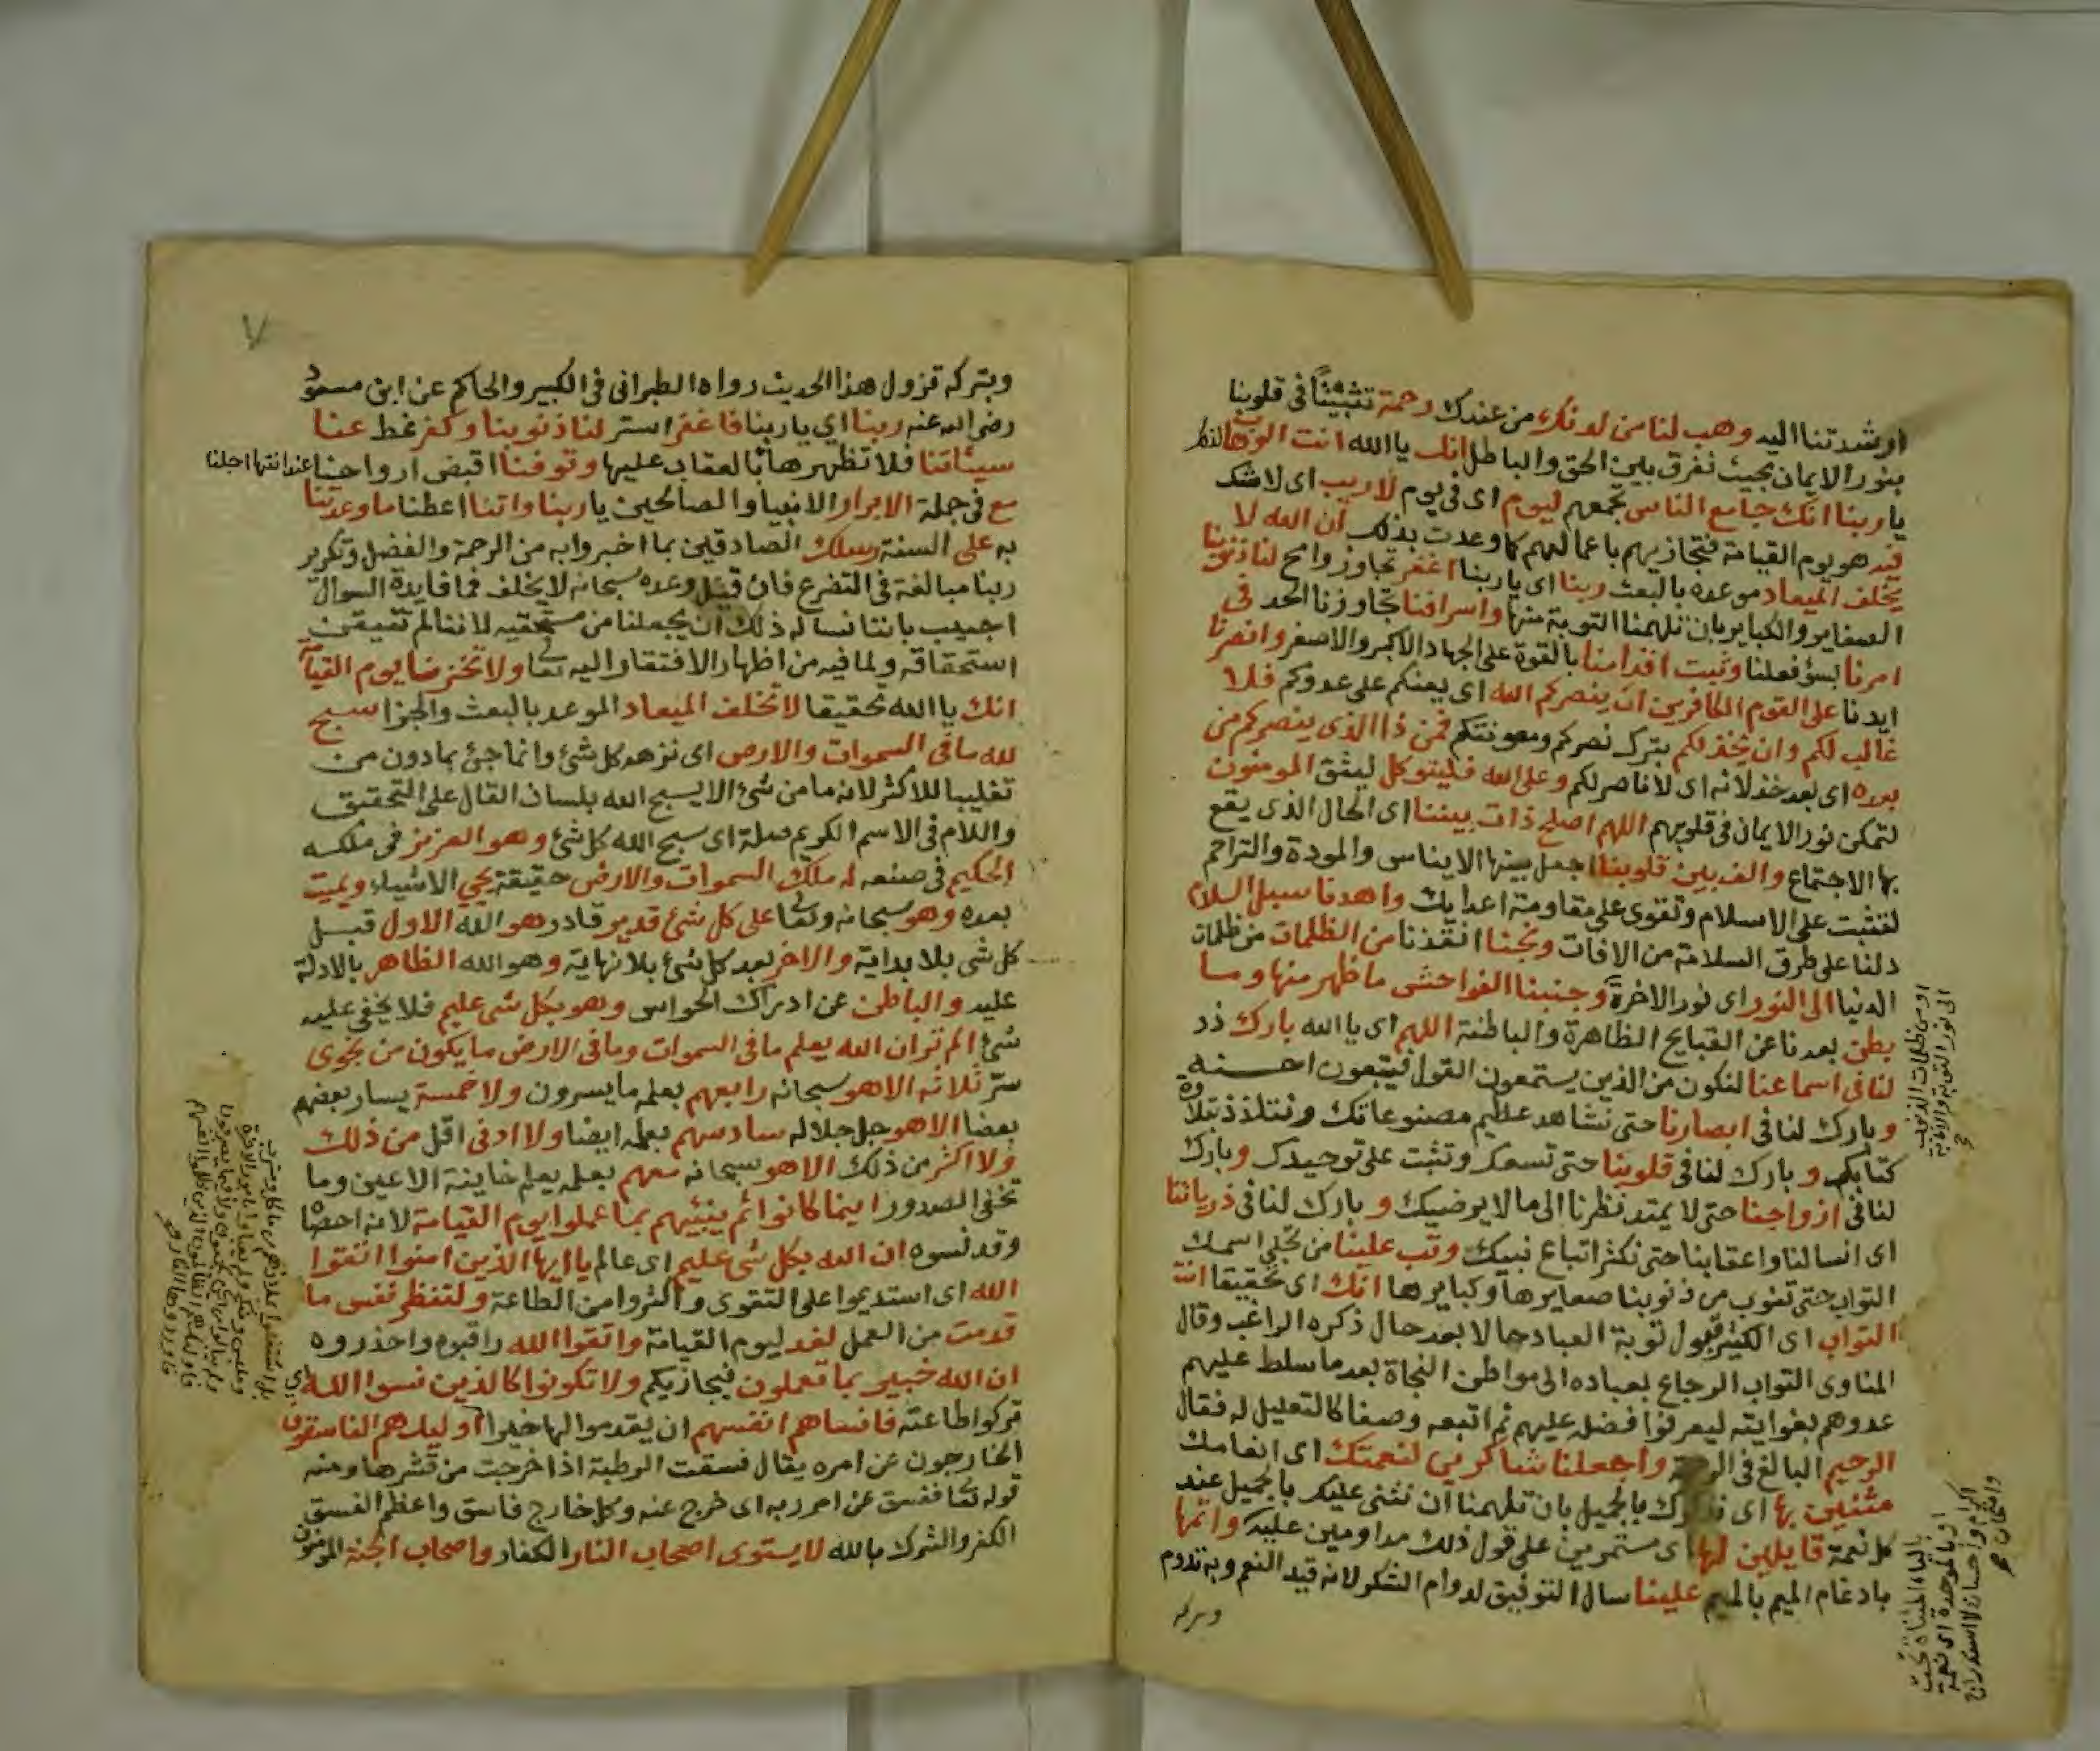 ارشدتنا اليه وهب لنا من لدنك من عندك رحمة تثبيتا في قلوبنا
بنور الايمان بحيث نفرق بين الحق والباطل انك يا الله انت الوهاب
يا ربنا انك جامع الناس تجمعهم ليوم اى فى يوم لا ريب اى لا شك
فيه هو يوم القيامة فتجازيهم باعمالهم كما وعدت بذلك ان الله لا
يخلف الميعاد موعده بالبعث ربنا اى يا ربنا اغفر تجاوز وامح لنا ذنوبنا
الصغاير والكباير بان تلهمنا التوبة منها واسرافنا تجاوزنا الحد فى
امرنا بسؤ فعلنا وثبت اقدامنا بالقوة على الجهاد الاكبر والاصغر وانصرنا
ايدنا على القوم الكافرين ان ينصركم الله اى يعنكم على عدوكم فلا
غالب لكم وان يخذلكم بترك نصركم ومعونتكم فمن ذا الذى ينصركم من
بعده اى بعد خذلانه اى لا ناصر لكم وعلى الله فليتوكل ليثق المومنون
لتمكن نور الايمان فى قلوبهم اللهم اصلح ذات بيننا اى الحال الذى يقع
بها الاجتماع والف بين قلوبنا اجعل بينها الايناس والمودة والتراحم
لنثبت على الاسلام ونقوى على مقاومة اعدايك واهدنا سبل السلام
دلنا على طرق السلامة من الافات ونجنا انقذنا من الظلمات من ظلمات
الدنيا الى النور اى نور الاخرة وجنبنا الفواحش ما ظهر منها وما
بطن بعدنا عن القبايح الظاهرة والباطنة اللهم اى يا الله بارك زد
لنا فى اسماعنا لنكون من الذين يستمعون القول فيتبعون احسنه
وبارك لنا فى ابصارنا حتى نشاهد عظيم مصنوعاتك ونتلذذ بتلاوة
كتابك وبارك لنا فى قلوبنا حتى تسعك وتثبت على توحيدك وبارك
لنا فى ازواجنا حتى لا يمتد نظرنا الى ما لا يرضيك وبارك لنا فى ذرياتنا
اى انسالنا واعقابنا حتى نكثر اتباع نبيك وتب علينا من تجلى اسمك
التواب حتى نتوب من ذنوبنا صغايرها وكبايرها انك اى تحقيقا انت
التواب اى الكثير قبول توبة العباد حالا بعد حال ذكره الراغب وقال
المناوى التواب الرجاع بعباده الى مواطن النجاة بعد ما سلط عليهم
عدوهم بغوايته ليعرفوا فضله عليهم ثم اتبعه وصفا كالتعليل له فقال
الرحيم البالغ فى الرحمة واجعلنا شاكرين لنعمتك اى انعامك
مثنين بها اى نذكرك بالجميل بان تلهمنا ان نثنى عليك بالجميل عند
كل نعمة قايلين لها اى مستمرين على قول ذلك مداومين عليه واتمها
بادغام الميم بالميم علينا سال التوفيق لدوام الشكر لانه قيد النعم وبه تدوم
وبتركه
او من ظلمات الذنوب
الى نور التوبة والانابة
بالياء المثناة تحت
او بالموحدة اى نعمة
اكرام واحسان لا استدراج
وامتحان
٧
وبتركه تزول هذا الحديث رواه الطبرانى فى الكبير والحاكم عن ابن مسعود
رضى الله عنه ربنا اي يا ربنا فاغفر استر لنا ذنوبنا وكفر غط عنا
سيئاتنا فلا تظهرها بالعقاب عليها وتوفنا اقبض ارواحنا عند انتها اجلنا
مع فى جملة الابرار الانبيا والصالحين يا ربنا واتنا اعطنا ما وعدتنا
به على السنة رسلك الصادقين بما اخبروا به من الرحمة والفضل وتكرير
ربنا مبالغة فى التضرع فان قيل وعده سبحانه لا يخلف فما فايدة السوال
اجيب باننا نساله ذلك ان يجعلنا من مستحقيه لاننا لم نتيقن
استحقاقه ولما فيه من اظهار الافتقار اليه تعالى ولا تخزنا يوم القيامة
انك يا الله تحقيقا لا تخلف الميعاد الموعد بالبعث والجزا سبح
لله ما فى السموات والارض اى نزهه كل شئ وانما جئ بما دون من
تغليبا للاكثر لانه ما من شئ الا يسبح الله بلسان القال على التحقيق
واللام فى الاسم الكريم صلة اى سبح الله كل شئ وهو العزيز فى ملكه
الحكيم فى صنعه له ملك السموات والارض حقيقة يحيي الاشياء ويميت
بعده وهو سبحانه وتعالى على كل شئ قدير قادر هو الله الاول قبل
كل شى بلا بداية والاخر بعد كل شئ بلا نهاية وهو الله الظاهر بالادلة
عليه والباطن عن ادراك الحواس وهو بكل شى عليم فلا يخفى عليه
شئ الم تر ان الله يعلم ما فى السموات وما فى الارض ما يكون من نجوى
سر ثلاثة الا هو سبحانه رابعهم بعلمه ما يسرون ولا خمسة يسار بعضهم
بعضا الا هو جل جلاله سادسهم بعلمه ايضا ولا ادنى اقل من ذلك
ولا اكثر من ذلك الا هو سبحانه معهم بعلمه يعلم خاينة الاعين وما
تخفى الصدور اينما كانوا ثم ينبئهم بما عملوا يوم القيامة لانه احصاه
وقد نسوه ان الله بكل شى عليم اى عالم يا ايها الذين امنوا اتقوا
الله اى استديموا على التقوى واكثروا من الطاعة ولتنظر نفس ما
قدمت من العمل لغد ليوم القيامة واتقوا الله راقبوه واحذروه
ان الله خبير بما تعملون فيجازيكم ولا تكونوا كالذين نسوا الله اي
تركوا طاعته فانساهم انفسهم ان يقدموا لها خيرا اوليك هم الفاسقون
الخارجون عن امره يقال فسقت الرطبة اذا خرجت من قشرها ومنه
قوله تعالى ففسق عن امر ربه اى خرج عنه وكل خارج فاسق واعظم الفسق
الكفر والشرك بالله لا يستوى اصحاب النار الكفار واصحاب الجنة المومنون